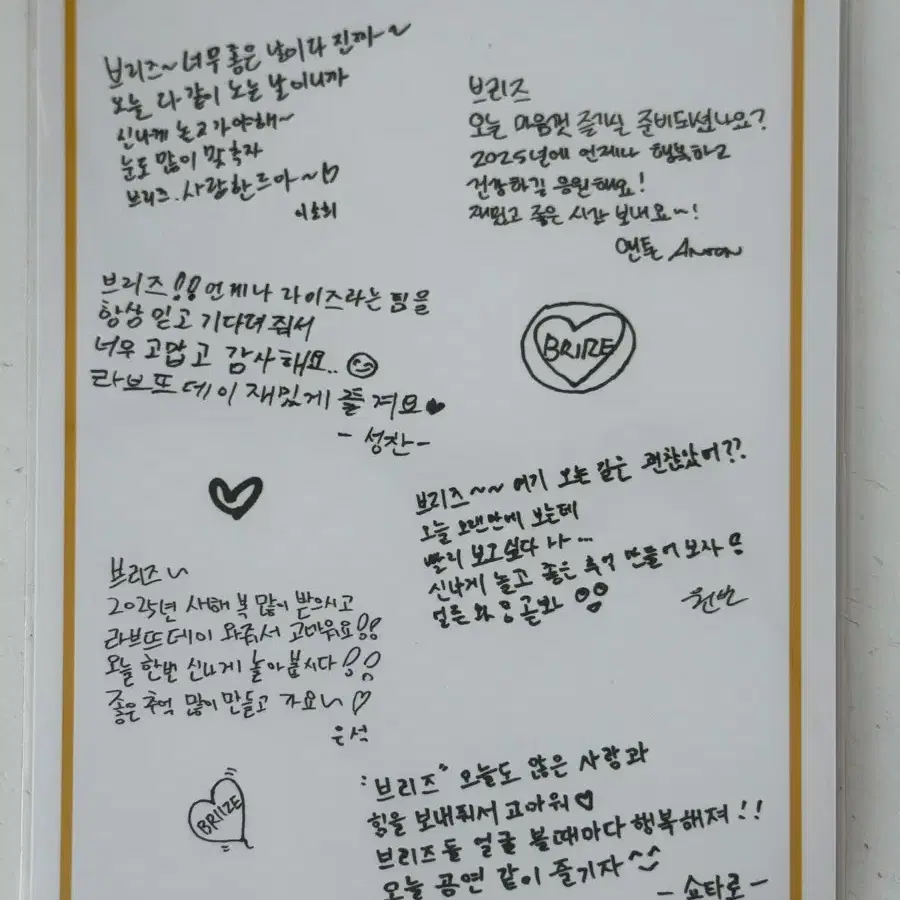 브리즈~ 너무 좋은 날이다 진짜~
오늘 다같이 노는 날이니까
신나게 놀고 가야해~
눈도 많이 맞추자
브리즈. 사랑한드아~♡
이소희
브리즈
오늘 마음껏 즐기실 준비되셨나요?
2025년에 언제나 행복하고
건강하길 응원해요!
재밌고 좋은 시간 보내요~!
앤톤 ANTON
브리즈!! 언제나 라이즈라는 팀을
항상 믿고 기다려줘서
너무 고맙고 감사해요..
라브뜨데이 재밌게 즐겨요♥
- 성찬 -
BRIIZE
브리즈~~ 여기 오는 길은 괜찮았어??
오늘 오랜만에 보는데
빨리 보고싶다 나...
신나게 놀고 좋은 추억 만들어 보자!
얼른 와
원빈
브리즈~
2025년 새해 복 많이 받으시고
라브뜨데이 와줘서 고마워요!!
오늘 한번 신나게 놀아봅시다!!
좋은 추억 많이 만들고 가요~♡
은석
BRIIZE
"브리즈" 오늘도 많은 사랑과
힘을 보내줘서 고마워♡
브리즈들 얼굴 볼때마다 행복해져!!
오늘 공연 같이 즐기자^^
- 쇼타로 -